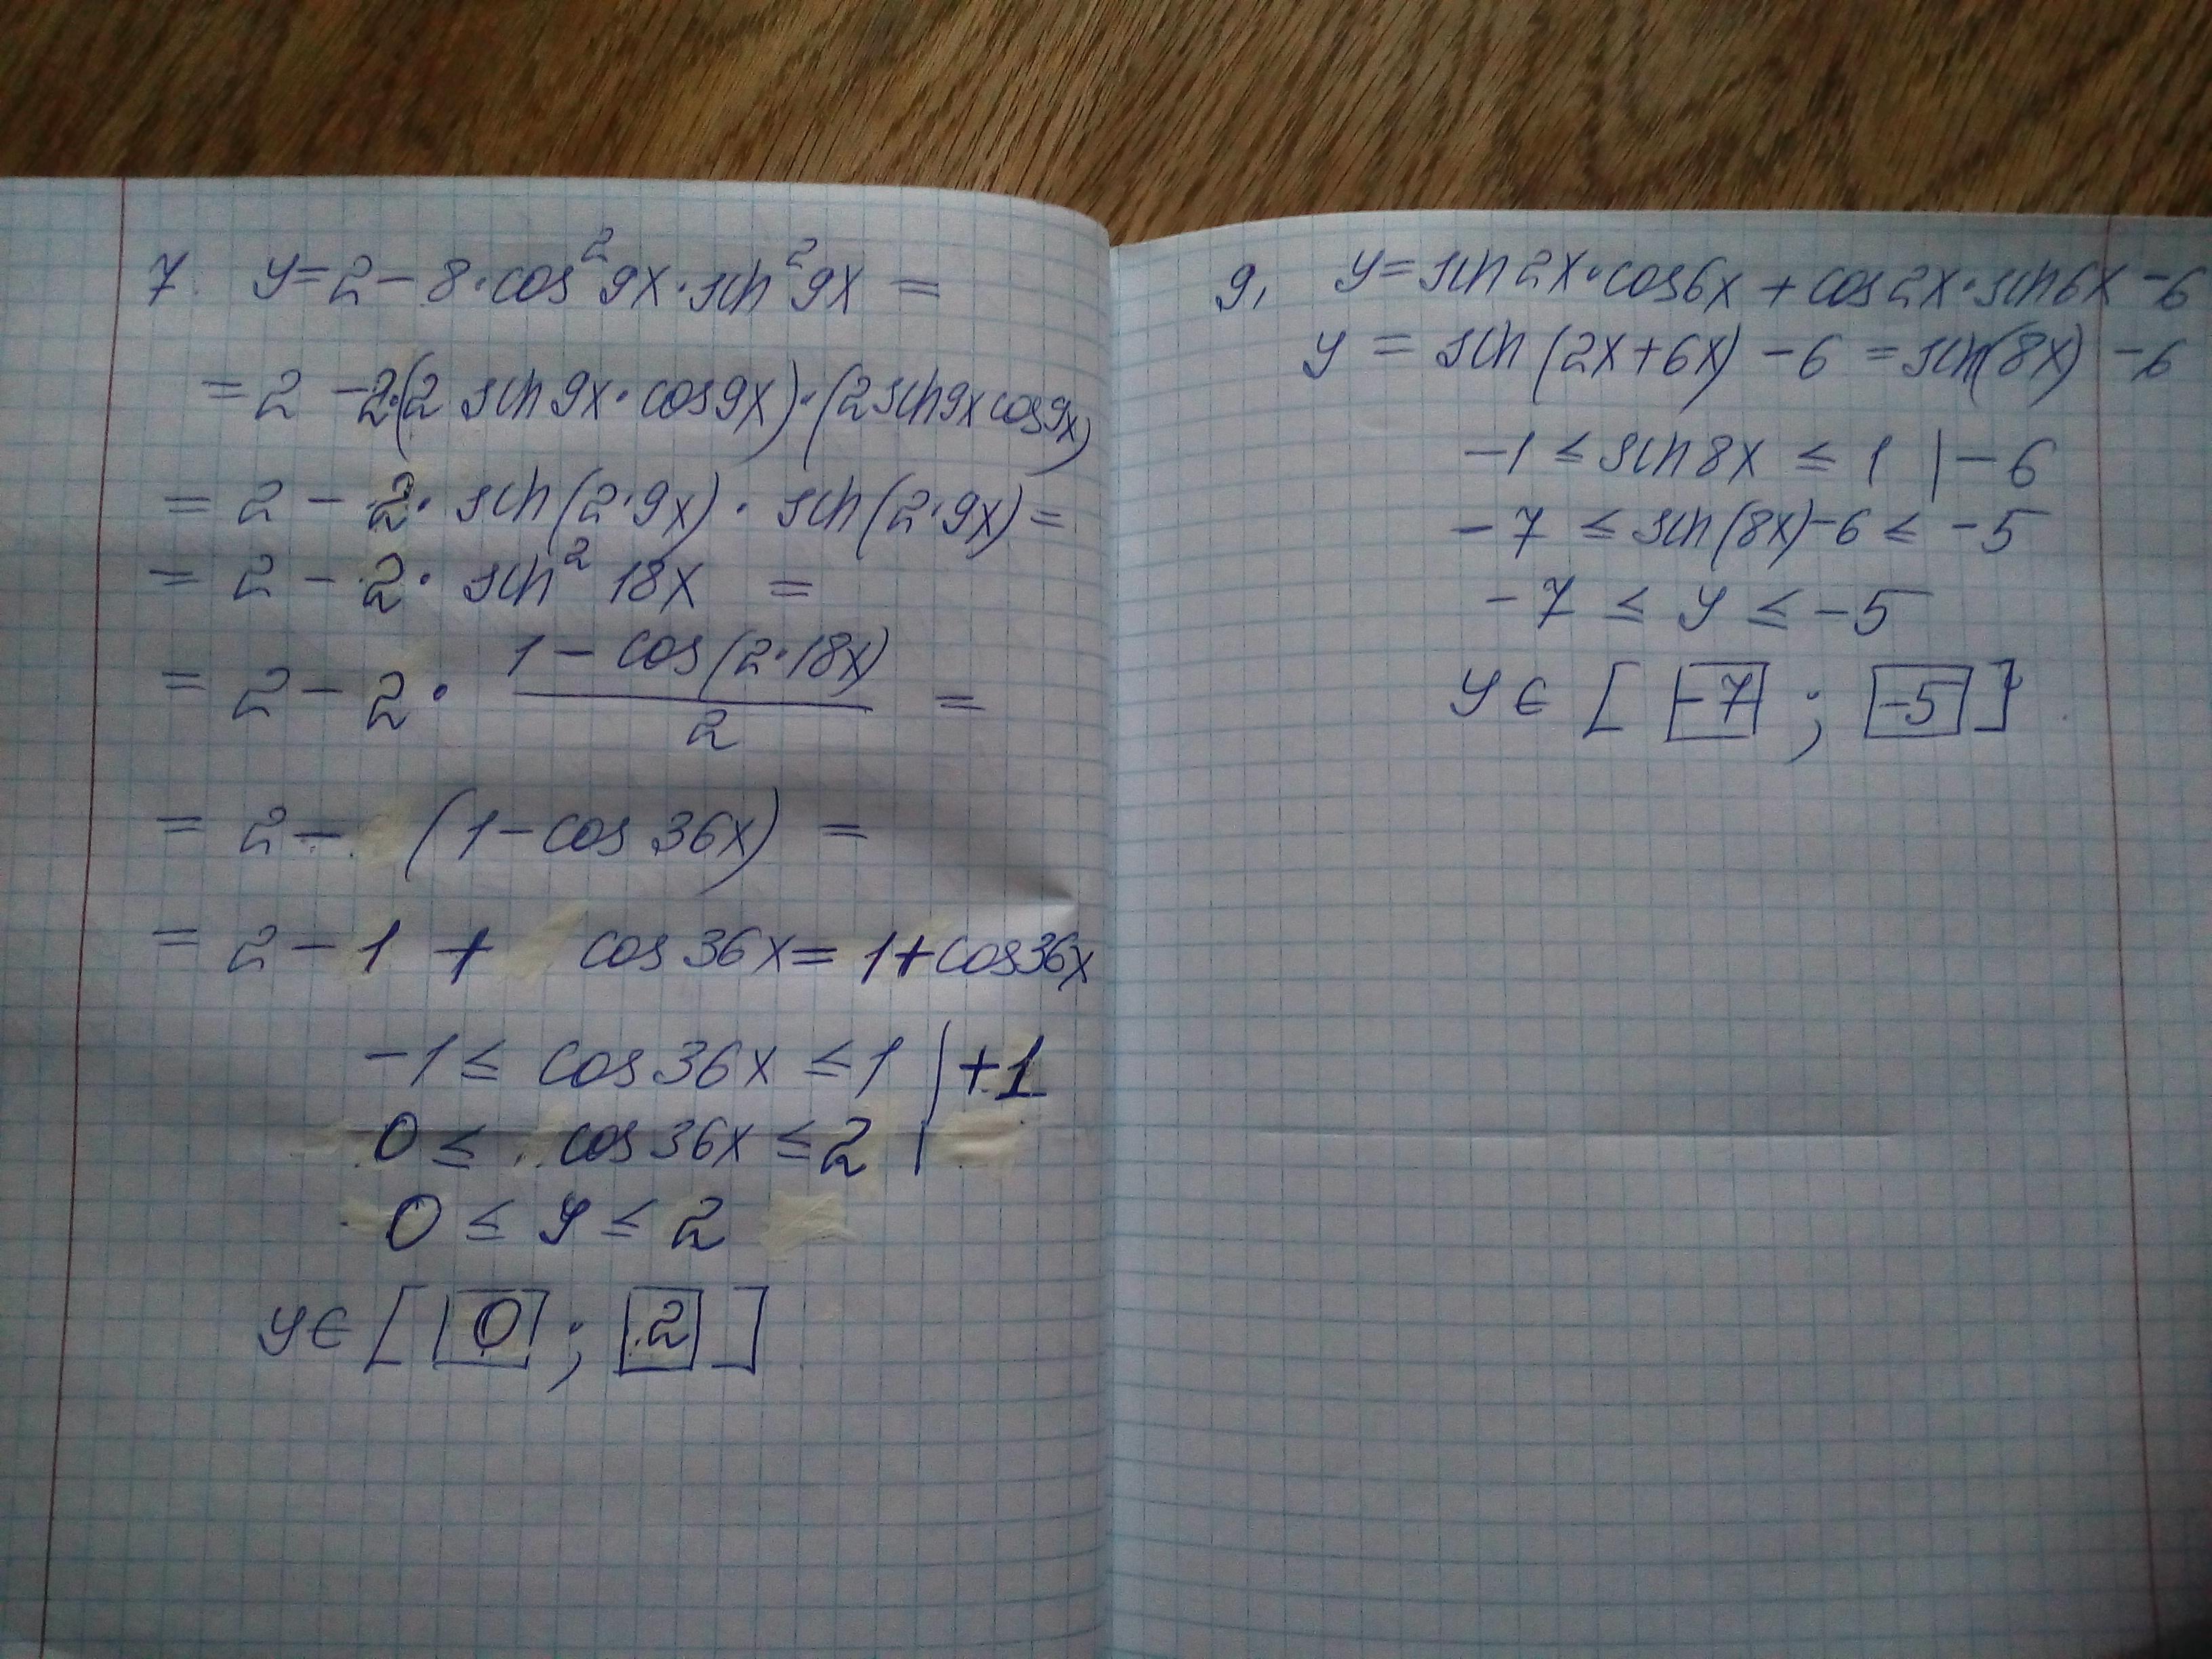 7. y=2-8·cos²9x·sin²9x =
=2-2·(2 sin9x·cos9x)·(2sin9xcos9x)
= 2-2· sin(2·9x)· sin(2·9x)=
= 2-2· sin² 18x =
= 2-2· \frac{1-cos(2·18x)}{2} =
= 2- (1-cos 36x) =
= 2-1 + cos 36x= 1+cos36x
-1≤ cos 36x ≤1 |+1
0≤ cos 36x ≤2 |
0 ≤ y ≤ 2
y∈ [ 0 ; 2 ]
9, y=sin2x·cos6x + cos2x·sin6x -6
y = sin(2x+6x) -6 =sin(8x) -6
-1 ≤ sin 8x ≤ 1 |-6
-7 ≤ sin(8x)-6 ≤ -5
-7 ≤ y ≤ -5
y ∈ [ -7 ; -5 ]